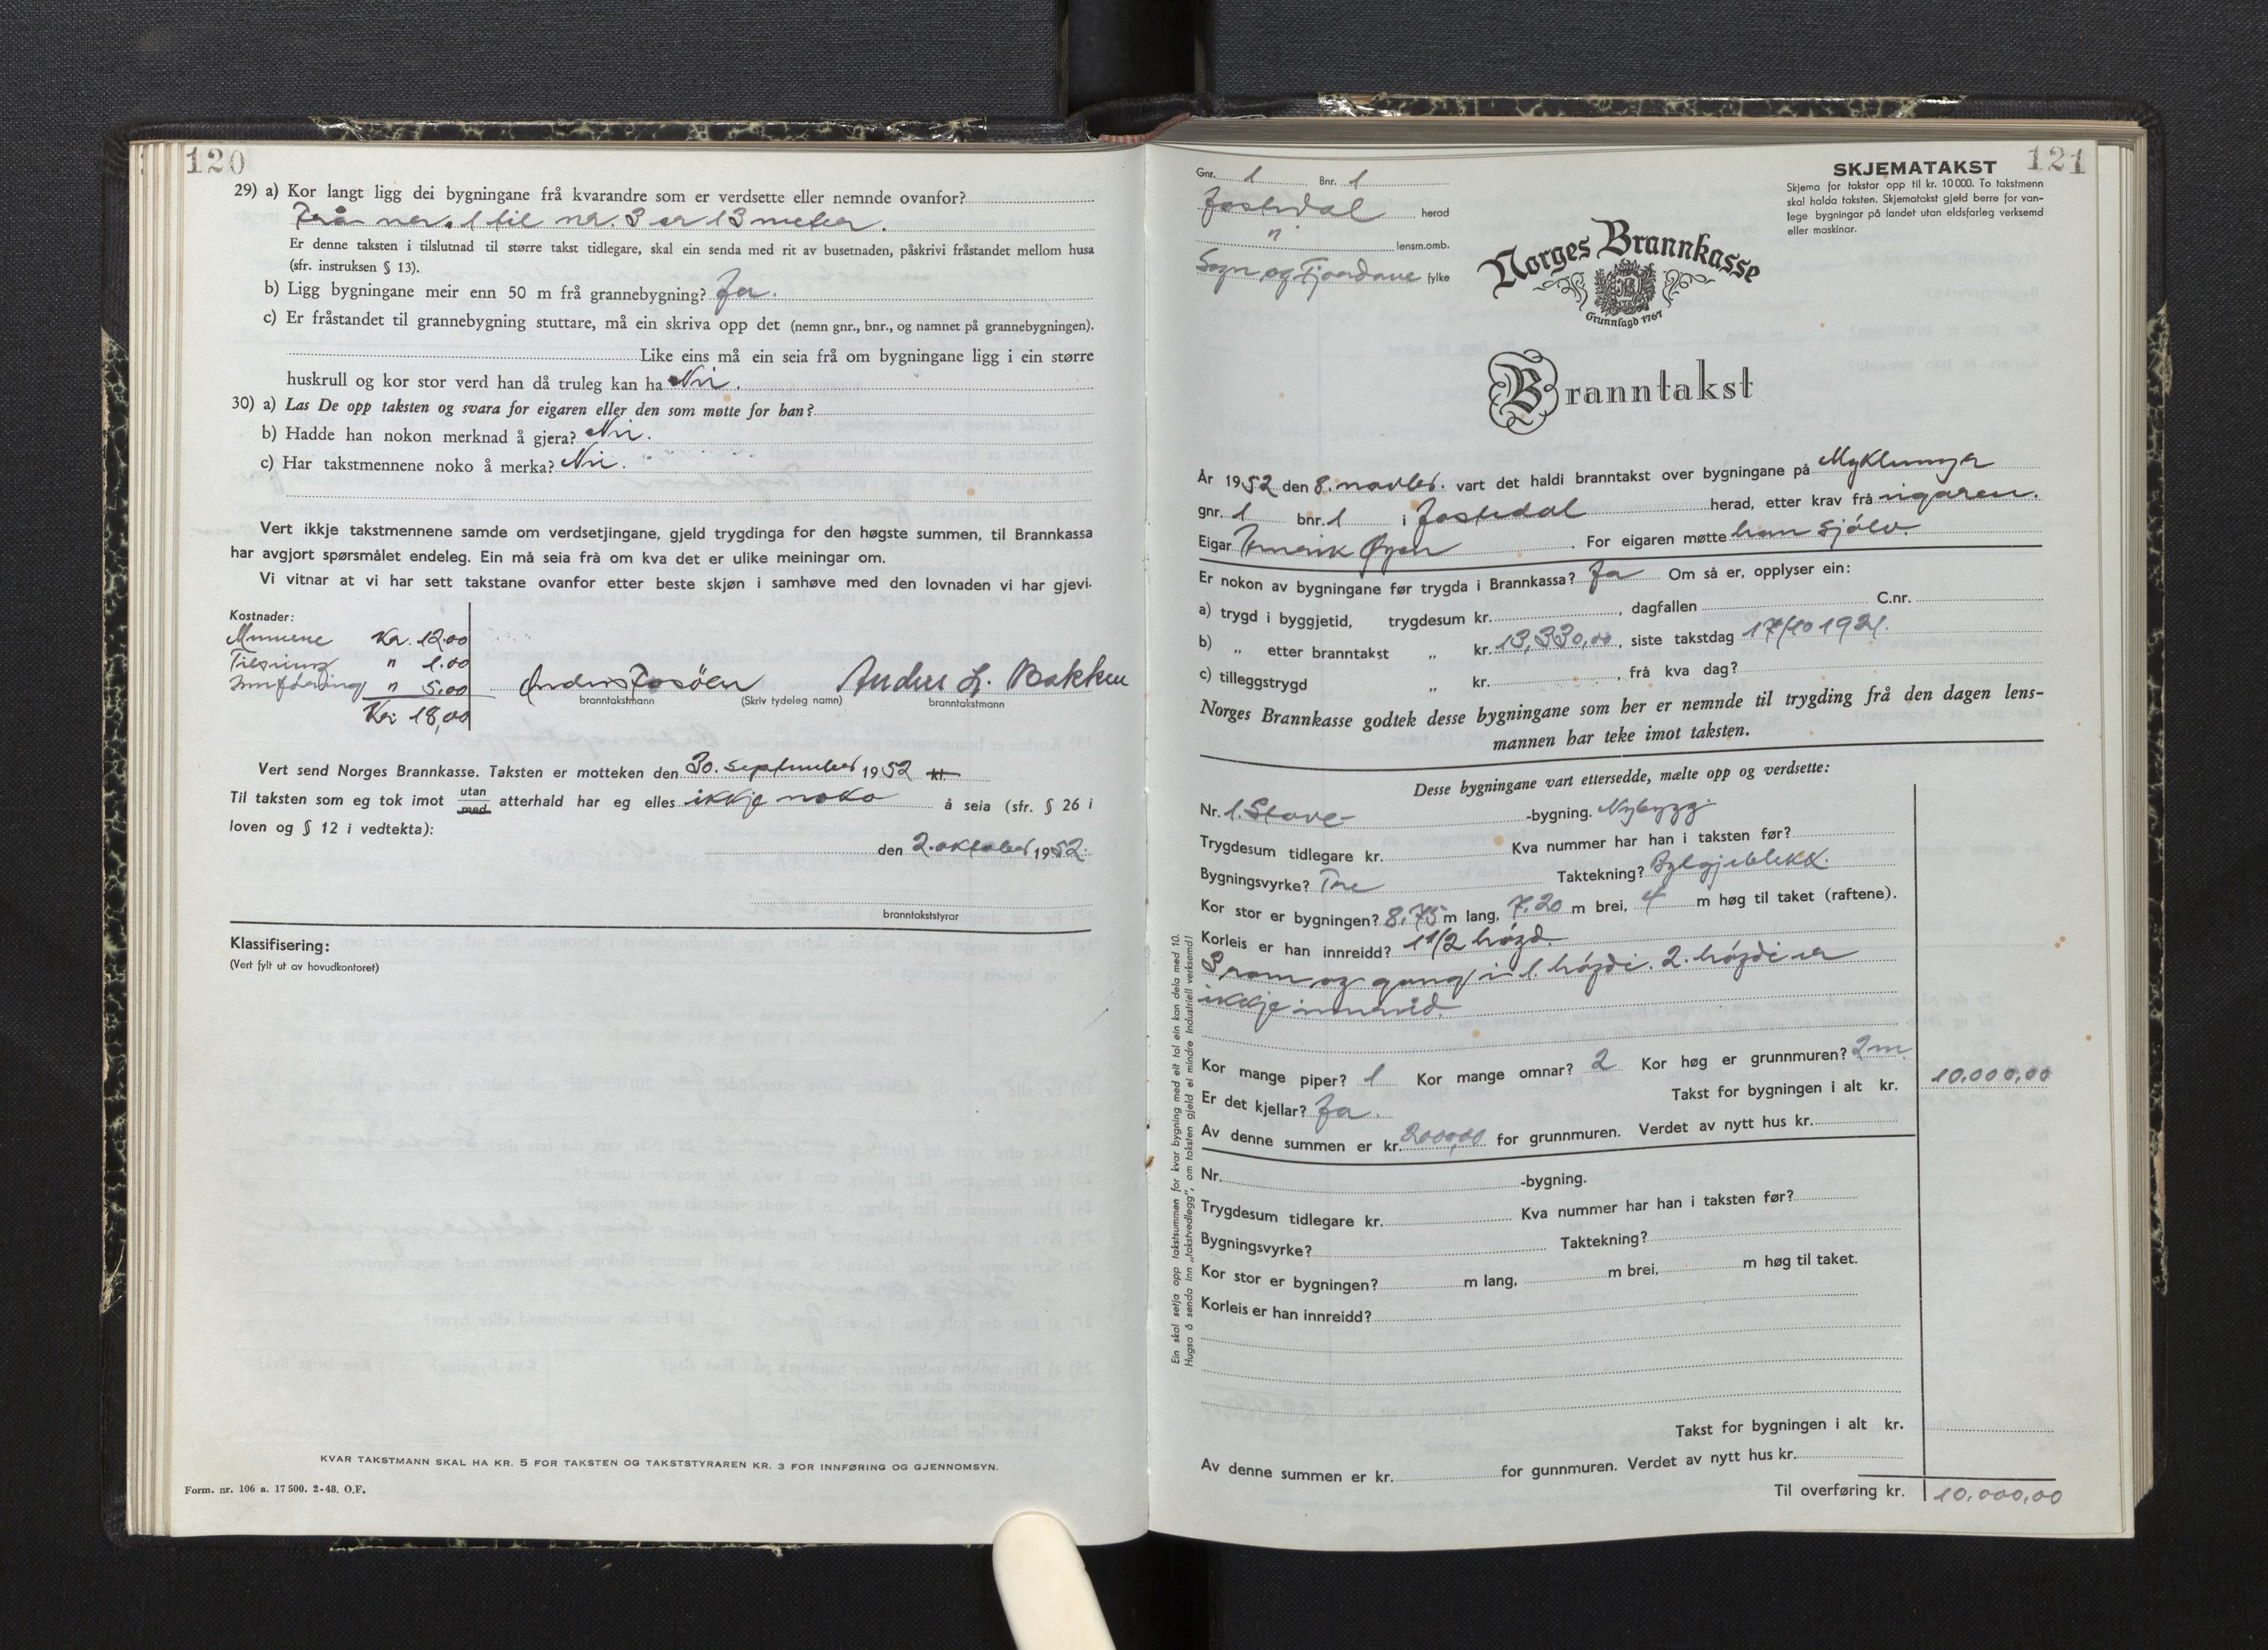 120
29) a) Kor langt ligg dei bygningane frå kvarandre som er verdsette eller nemnde ovanfor?
Frå nr. 1 til nr. 3 er 13 meter.
Er denne taksten i tilslutnad til større takst tidlegare, skal ein senda med rit av busetnaden, påskrivi fråstandet mellom husa
(sfr. instruksen § 13).
b) Ligg bygningane meir enn 50 m frå grannebygning? Ja.
c) Er fråstandet til grannebygning stuttare, må ein skriva opp det (nemn gnr., bnr., og namnet på grannebygningen).
Like eins må ein seia frå om bygningane ligg i ein større
huskrull og kor stor verd han då truleg kan ha Nei.
30) a) Las De opp taksten og svara for eigaren eller den som møtte for han?
b) Hadde han nokon merknad å gjera? Nei.
c) Har takstmennene noko å merka? Nei.
Vert ikkje takstmennene samde om verdsetjingane, gjeld trygdinga for den høgste summen, til Brannkassa
har avgjort spørsmålet endeleg. Ein må seia frå om kva det er ulike meiningar om.
Vi vitnar at vi har sett takstane ovanfor etter beste skjøn i samhøve med den lovnaden vi har gjevi.
Kostnader:
Mennene Kr. 12.00
" 1.00
Innføring " 5.00
Kr. 18,00
Anders Fosøen Anders L. Bakken
branntakstmann (Skriv tydeleg namn) branntakstmann
Vert send Norges Brannkasse. Taksten er motteken den 30. september 1952 kl.
Til taksten som eg tok imot utan/med atterhald har eg elles ikkje noko å seia (sfr. § 26 i
loven og § 12 i vedtekta):
den 2. oktober 1952.
branntakststyrar
Klassifisering:
(Vert fylt ut av hovudkontoret)
KVAR TAKSTMANN SKAL HA KR. 5 FOR TAKSTEN OG TAKSTSTYRAREN KR. 3 FOR INNFØRING OG GJENNOMSYN.
Form. nr. 106 a. 17 500. 2-48. O.F.
121
Gnr. 1 Bnr. 1
Jostedal herad
" lensm.omb.
Sogn og Fjordane fylke
SKJEMATAKST
Skjema for takstar opp til kr. 10 000. To takstmenn
skal halda taksten. Skjematakst gjeld berre for van-
lege bygningar på landet utan eldsfarleg verksemd
eller maskinar.
Norges Brannkasse
Grunnlagd 1767
Branntakst
År 1952 den 8. novbr. vart det haldi branntakst over bygningane på Myklemyr
gnr. 1 bnr. 1 i Jostedal herad, etter krav frå eigaren.
Eigar Henrik Øyen. For eigaren møtte han sjølv.
Er nokon av bygningane før trygda i Brannkassa? Ja Om så er, opplyser ein:
a) trygd i byggjetid, trygdesum kr. , dagfallen C.nr.
b) „ etter branntakst „ kr. 13,330,00, siste takstdag 17/10 1921.
c) tilleggstrygd „ kr. , frå kva dag?
Norges Brannkasse godtek desse bygningane som her er nemnde til trygding frå den dagen lens-
mannen har teke imot taksten.
Desse bygningane vart ettersedde, mælte opp og verdsette:
Nr. 1. Stove- -bygning. Nybygg.
Trygdesum tidlegare kr. Kva nummer har han i taksten før?
Bygningsvyrke? Tre Taktekning? Bylgjeblekk.
Kor stor er bygningen? 8,75 m lang, 7,20 m brei, 4 m høg til taket (raftene).
Korleis er han innreidd? 1 1/2 høgd.
3 rom og gang i 1. høgdi. 2. høgdi er
ikkje innreid.
Kor mange piper? 1 Kor mange omnar? 2 Kor høg er grunnmuren? 2 m.
Er det kjellar? Ja. Takst for bygningen i alt kr. 10.000,00
Av denne summen er kr. 2000,00 for grunnmuren. Verdet av nytt hus kr.
Nr. -bygning.
Trygdesum tidlegare kr. Kva nummer har han i taksten før?
Bygningsvyrke? Taktekning?
Kor stor er bygningen? m lang, m brei, m høg til taket.
Korleis er han innreidd?
Takst for bygningen i alt kr.
Av denne summen er kr. for gunnmuren. Verdet av nytt hus kr.
Til overføring kr. 10.000,00
Ein skal setja opp takstsummen for kvar bygning med eit tal ein kan dela med 10.
Hugso å senda inn „takstvedlegg", om taksten gjeld ei mindre Industriell verksemd!